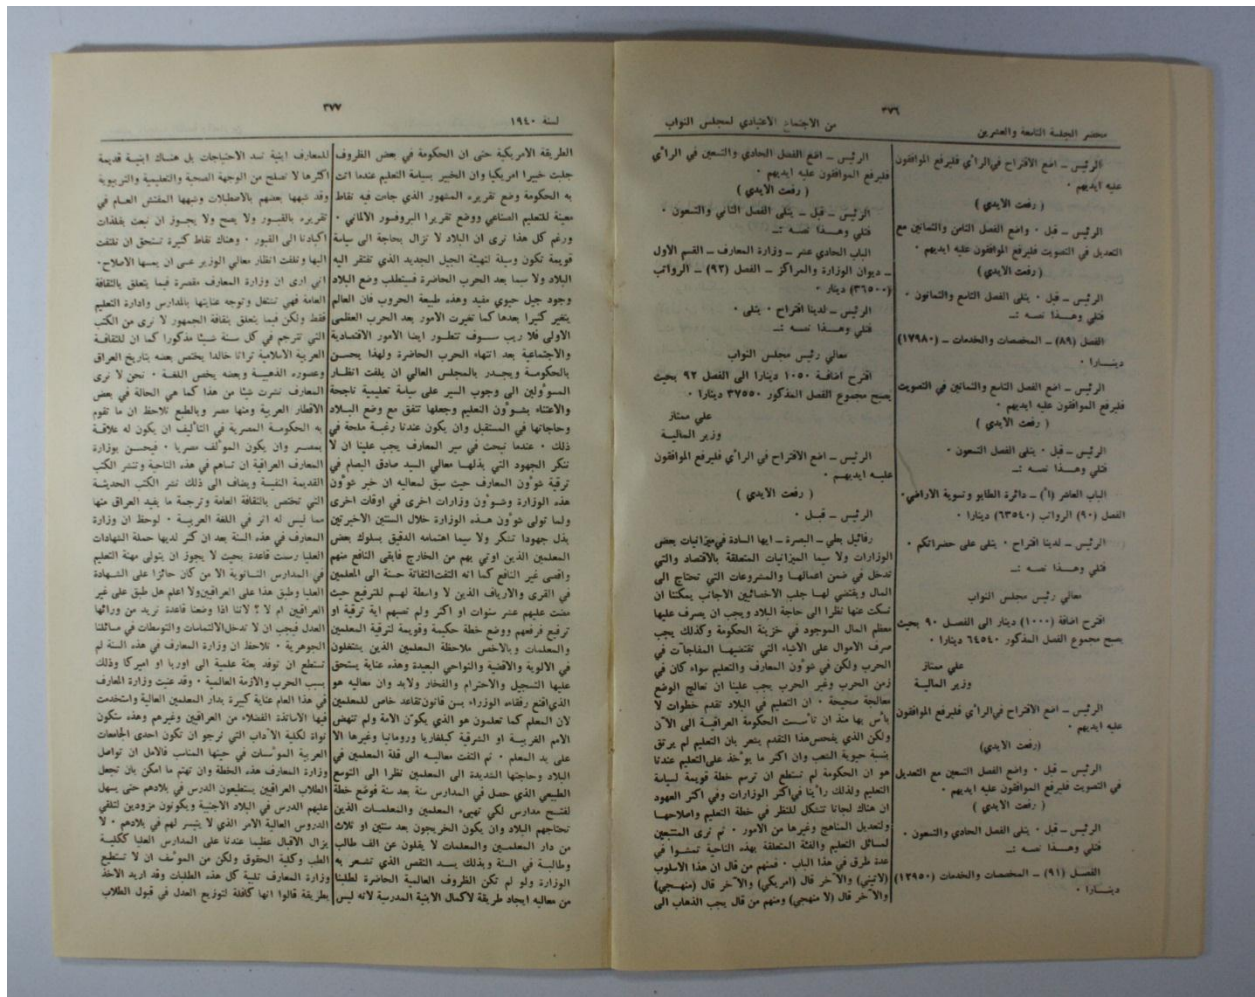 ٣٧٦
محضر الجلسة التاسعة والعشرين
من الاجتماع الاعتيادي لمجلس النواب
الرئيس ــ اضع الاقتراح في الرأي فليرفع الموافقون
عليه ايديهم ٠
( رفعت الايدي )
الرئيس ــ قبل ٠ واضع الفصل الثامن والثمانين مع
التعديل في التصويت فليرفع الموافقون عليه ايديهم ٠
( رفعت الايدي )
الرئيس ــ قبل ٠ يتلى الفصل التاسع والثمانون ٠
فتلي وهــذا نصه :ــ
الفصل (٨٩) ــ المخصصات والخدمات ــ (١٧٩٨٠)
دينــارا ٠
الرئيس ــ اضع الفصل التاسع والثمانين في التصويت
فليرفع الموافقون عليه ايديهم ٠
( رفعت الايدي )
الرئيس ــ قبل ٠ يتلى الفصل التسعون ٠
فتلي وهــذا نصه :ــ
الباب العاشر (أ) ــ دائرة الطابو وتسوية الاراضي٠
الفصل (٩٠) الرواتب (٦٣٥٤٠) دينارا ٠
الرئيس ــ لدينا اقتراح ٠ يتلى على حضراتكم ٠
فتلي وهــذا نصه :ــ
معالي رئيس مجلس النواب
اقترح اضافة (١٠٠٠) دينار الى الفصــل ٩٠ بحيث
يصبح مجموع الفصل المذكور ٦٤٥٤٠ دينارا ٠
علي ممتاز
وزير الماليــة
الرئيس ــ اضع الاقتراح في الرأي فليرفع الموافقون
عليه ايديهم ٠
(رفعت الايدي)
الرئيس ــ قبل ٠ واضع الفصل التسعين مع التعديل
في التصويت فليرفع الموافقون عليه ايديهم ٠
( رفعت الايدي )
الرئيس ــ قبل ٠ يتلى الفصل الحادي والتسعون ٠
فتلي وهــذا نصه :ــ
الفصــل (٩١) ــ المخصصات والخدمات (١٢٩٥٠)
دينــارا ٠
الرئيس ــ اضع الفصل الحادي والتسعين في الرأي
فليرفع الموافقون عليه ايديهم ٠
( رفعت الايدي )
الرئيس ــ قبل ٠ يتلى الفصل الثاني والتسعون ٠
فتلي وهــذا نصــه :ــ
الباب الحادي عشر ــ وزارة المعارف ــ القسم الاول
ــ ديوان الوزارة والمراكز ــ الفصل (٩٢) ــ الرواتب
(٣٦٥٠٠) دينار ٠
الرئيس ــ لدينا اقتراح ٠ يتلى ٠
فتلي وهــذا نصه :ــ
معالي رئيس مجلس النواب
اقترح اضافة ١٠٥٠ دينارا الى الفصل ٩٢ بحيث
يصبح مجموع الفصل المذكور ٣٧٥٥٠ دينارا ٠
علي ممتاز
وزير الماليــة
الرئيس ــ اضع الاقتراح في الرأي فليرفع الموافقون
عليــه ايديهــم ٠
( رفعت الايدي )
الرئيس ــ قبــل ٠
رفائيل بطي ــ البصرة ــ ايها السادة في ميزانيات بعض
الوزارات ولا سيما الميزانيات المتعلقة بالاقتصاد والتي
تدخل في ضمن اعمالهــا والمشروعات التي تحتاج الى
المال ويقتضي لهــا جلب الاخصائيين الاجانب يمكننا ان
نسكت عنها نظرا الى حاجة البلاد ويجب ان يصرف عليها
معظم المال الموجود في خزينة الحكومة وكذلك يجب
صرف الاموال على الاشياء التي تقتضيهــا المفاجآت في
الحرب ولكن في شؤون المعارف والتعليم سواء كان في
زمن الحرب وغير الحرب يجب علينا ان نعالج الوضع
معالجة صحيحة ٠ ان التعليم في البلاد تقدم خطوات لا
بأس بها منذ ان تأسست الحكومة العراقيــة الى الآن
ولكن الذي يفحص هذا التقدم يشعر بان التعليم لم يرتق
بنسبة حيوية الشعب وان اكثر ما يؤخذ على التعليم عندنا
هو ان الحكومة لم تستطع ان ترسم خطة قويمة لسياسة
التعليم ولذلك رأينا في اكثر الوزارات وفي اكثر العهود
ان هناك لجانا تتشكل للنظر في خطة التعليم واصلاحهــا
ولتعديل المناهج وغيرها من الامور ٠ ثم نرى المتتبعين
لمسائل التعليم والفئة المتعلقة بهذه الناحية تمشــوا في
عدة طرق في هذا الباب ٠ فمنهم من قال ان هذا الاسلوب
(لاتيني) والآخر قال (امريكي) والآخر قال (منهــجي)
والآخر قال (لا منهجي) ومنهم من قال يجب الذهاب الى
٣٧٧
لسنة ١٩٤٠
الطريقة الامريكية حتى ان الحكومة في بعض الظروف
جلبت خبيرا امريكيا وان الخبير بسياسة التعليم عندما اتت
به الحكومة وضع تقريره المشهور الذي جاءت فيه نقاط
معينة للتعليم الصناعي ووضع تقريرا البروفسور الالماني ٠
ورغم كل هذا نرى ان البلاد لا تزال بحاجة الى سياسة
قويمة تكون وسيلة لتهيئة الجيل الجديد الذي تفتقر اليه
البلاد ولا سيما بعد الحرب الحاضرة فستطلب وضع البلاد
وجود جيل حيوي مفيد وهذه طبيعة الحروب فان العالم
يتغير كثيرا بعدها كما تغيرت الامور بعد الحرب العظمى
الاولى فلا ريب ســوف تتطــور ايضا الامور الاقتصادية
والاجتماعية بعد انتهاء الحرب الحاضرة ولهذا يحســن
بالحكومــة ويجــدر بالمجلس العالي ان يلفت انظــار
المسؤولين الى وجوب السير على سياسة تعليمية ناجحة
والاعتناء بشــؤون التعليم وجعلها تتفق مع وضع البــلاد
وحاجاتها في المستقبل وان يكون عندنا رغبــة ملحة في
ذلك ٠ عندما نبحث في سير المعارف يجب علينا ان لا
ننكر الجهود التي بذلهــا معالي السيد صادق البصام في
ترقية شؤون المعارف حيث سبق لمعاليه ان خبر شؤون
هذه الوزارة وشــؤون وزارات اخرى في اوقات اخرى
ولما تولى شؤون هــذه الوزارة خلال السنتين الاخيرتين
بذل جهودا تشكر ولا سيما اهتمامه الدقيق بسلوك بعض
المعلمين الذين اوتي بهم من الخارج فأبقى النافع منهم
واقصى غير النافع كما انه التفت التفاتة حسنة الى المعلمين
في القرى والارياف الذين لا واسطة لهــم للترفيع حيث
مضت عليهم عشر سنوات او اكثر ولم تصبهم اية ترقية او
ترفيع فرفعهم ووضع خطة حكيمة وقويمة لترقية المعلمين
والمعلمات وبالاخص ملاحظة المعلمين الذين يشتغلون
في الالوية والاقضية والنواحي البعيدة وهذه عناية يستحق
عليها التسجيل والاحترام والفخار ولابد وان معاليه هو
الذي اقنع رفقاءه الوزراء بسن قانون تقاعد خاص للمعلمين
لان المعلم كما تعلمون هو الذي يكون الامة ولم تنهض
الامم الغربيــة او الشرقية كبلغاريا ورومانيا وغيرها الا
على يد المعلم ٠ ثم التفت معاليــه الى قلة المعلمين في
البلاد وحاجتها الشديدة الى المعلمين نظرا الى التوسع
الطبيعي الذي حصل في المدارس سنة بعد سنة فوضع خطة
لفتــح مدارس لكي تهيىء المعلمين والمعلمــات الذين
تحتاجهم البلاد وان يكون الخريجون بعد سنتين او ثلاث
من دار المعلمين والمعلمات لا يقلون عن الف طالب
وطالبــة في السنة وبذلك يســد النقص الذي تشعر به
الوزارة ولو لم تكن الظروف العالمية الحاضرة لطلبنا
من معاليه ايجاد طريقة لاكمال الابنية المدرسية لانه ليس
للمعارف ابنية تسد الاحتياجات بل هنــاك ابنيــة قديمة
اكثرها لا تصلح من الوجهة الصحية والتعليمية والتربيوية
وقد شبهها بعضهم بالاصطبلات وشبهها المفتش العــام في
تقريره بالقبــور ولا يصح ولا يجــوز ان نبعث بفلذات
اكبادنا الى القبور ٠ وهناك نقاط كثيرة تستحق ان نلتفت
اليها ونلفت انظار معالي الوزير عسى ان يمسها الاصلاح٠
اني ارى ان وزارة المعارف مقصرة فيما يتعلق بالثقافة
العامة فهي تشتغل وتوجه عنايتها بالمدارس وادارة التعليم
فقط ولكن فيما يتعلق بثقافة الجمهور لا نرى من الكتب
التي تترجم في كل سنة شيئا مذكورا كما ان للثقافــة
العربية الاسلامية تراثا خالدا يختص بعضه بتاريخ العراق
وعصوره الذهبيــة وبعضه يخص اللغــة ٠ نحن لا نرى
المعارف نشرت شيئا من هذا كما هي الحالة في بعض
الاقطار العربية ومنها مصر وبالطبع نلاحظ ان ما تقوم
به الحكومة المصرية في التأليف ان يكون له علاقــة
بمصــر وان يكون المؤلف مصريا ٠ فيحســن بوزارة
المعارف العراقية ان تساهم في هذه الناحية وتنشر الكتب
القديمة النفيسة ويضاف الى ذلك نشر الكتب الحديثــة
التي تختص بالثقافة العامة وترجمة ما يفيد العراق منها
مما ليس له اثر في اللغة العربيــة ٠ لوحظ ان وزارة
المعارف في هذه السنة بعد ان كثر لديها حملة الشهادات
العليا رسمت قاعدة بحيث لا يجوز ان يتولى مهنة التعليم
في المدارس الثــانوية الا من كان حائزا على الشــهادة
العليا وطبق هذا على العراقيين ولا اعلم هل طبق على غير
العراقيين ام لا ؟ لاننا اذا وضعنا قاعدة نريد من ورائها
العدل فيجب ان لا تدخل الالتماسات والتوسطات في مسائلنا
الجوهرية ٠ نلاحظ ان وزارة المعارف في هذه السنة لم
تستطع ان توفد بعثة علمية الى اوربا او اميركا وذلك
بسبب الحرب والازمة العالمية ٠ وقد عنيت وزارة المعارف
في هذا العام عناية كبيرة بدار المعلمين العالية واستخدمت
فيها الاساتذة الفضلاء من العراقيين وغيرهم وهذه ستكون
نواة لكلية الآداب التي نرجو ان تكون احدى الجامعات
العربية المؤسسات في حينها المناسب فالامل ان تواصل
وزارة المعارف هذه الخطة وان تهتم ما امكن بان تجعل
الطلاب العراقيين يستطيعون الدرس في بلادهم حتى يسهل
عليهم الدرس في البلاد الاجنبية ويكونون مزودين لتلقي
الدروس العالية الامر الذي لا يتيسر لهم في بلادهم ٠ لا
يزال الاقبال عظيما عندنا على المدارس العليا ككليــة
الطب وكلية الحقوق ولكن من المؤسف ان لا تستطيع
وزارة المعارف تلبية كل هذه الطلبات وقد اريد الاخذ
بطريقة قالوا انها كافلة لتوزيع العدل في قبول الطلاب